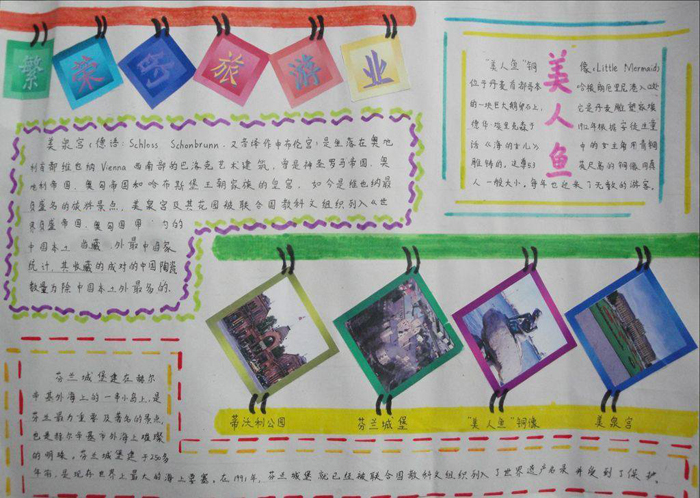 繁荣的旅游业
美泉宫(德语: Schloss Schonbrunn, 又音译作申布伦宫)是坐落在奥地
利首都维也纳 Vienna 西南部的巴洛克艺术建筑, 曾是神圣罗马帝国、奥
地利帝国、奥匈帝国和哈布斯堡王朝家族的皇宫, 如今是维也纳最
负盛名的旅游景点, 美泉宫及其花园被联合国教科文组织列入《世
帝国、奥匈国
中国本土 外最 中国
统计, 其收藏的成对的中国陶瓷
数量为除中国本土外最多的.
美人鱼
"美人鱼"铜像(Little Mermaid)
位于丹麦首都哥本哈根朗厄里尼港入口处
的一块巨大鹅卵石上, 它是丹麦雕塑家埃
德华·埃里克森于1912年根据安徒生童
话《海的女儿》中的女主角用青铜
雕铸的. 远看
人一般大小. 每年也迎来了无数的游客.
蒂沃利公园
芬兰城堡
"美人鱼"铜像
美泉宫
芬兰城堡建在赫尔
辛基外海上的一串小岛上, 是
芬兰最为重要及著名的景点,
也是赫尔辛基市外海上璀璨
的明珠. 芬兰城堡建于250多
年前, 是现存世界上最大的海上要塞. 在1991年, 芬兰城堡就已经被联合国教科文组织列入了世界遗产名录并受到了保护.